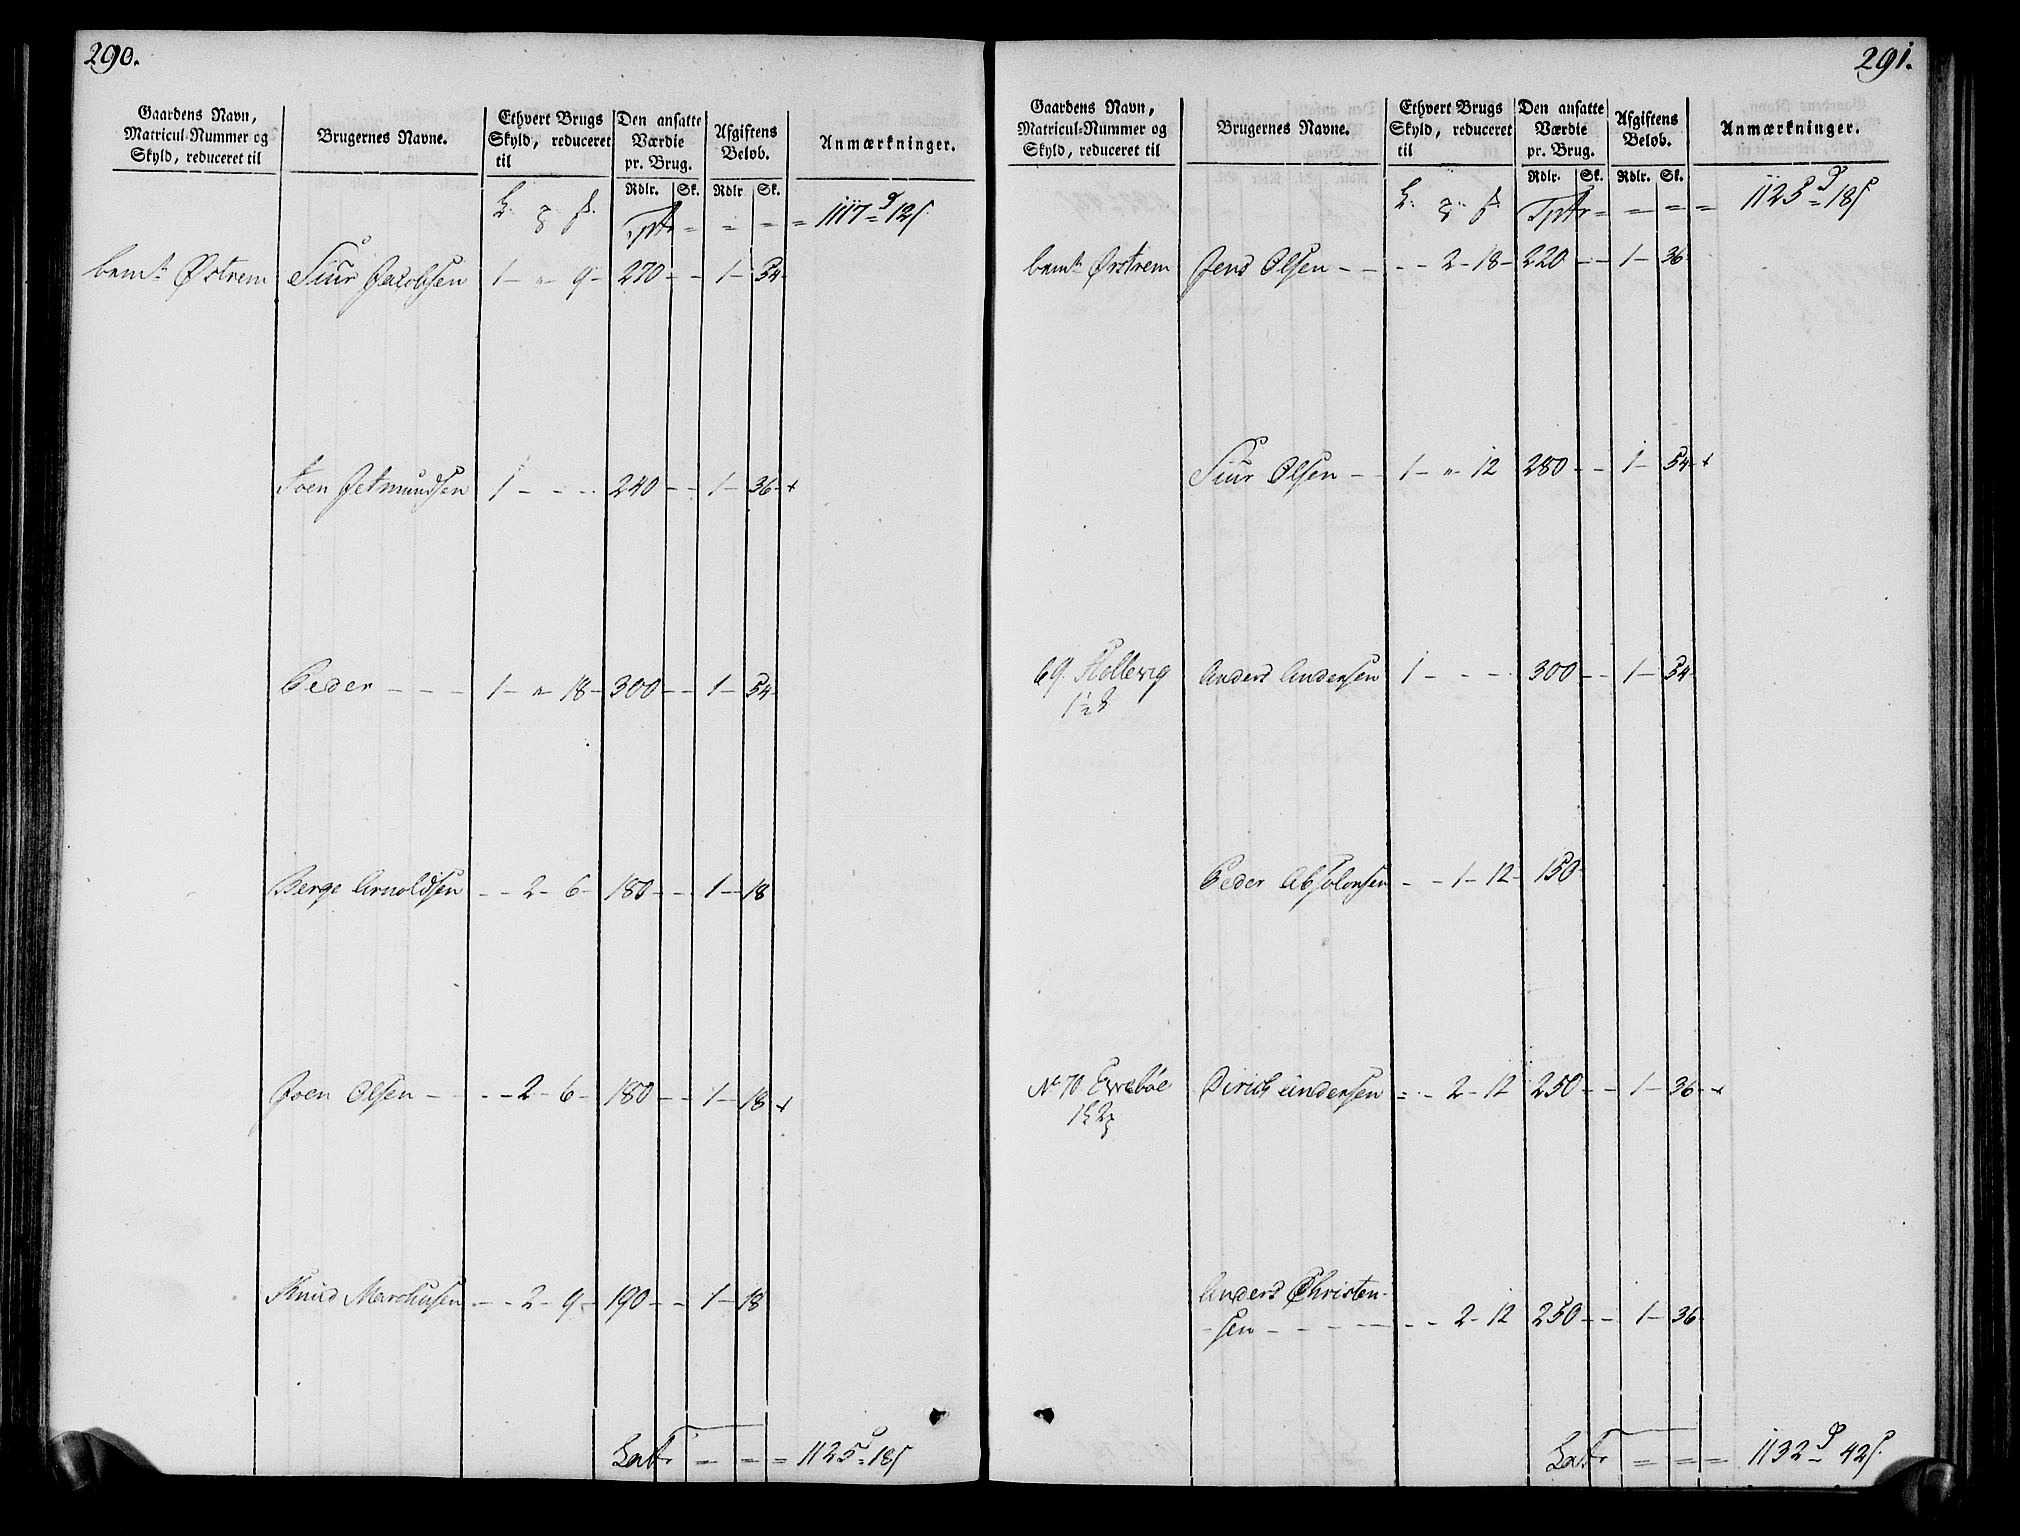 290.
Gaardens Navn,
Matricul-Nummer og
Skyld, reduceret til
Brugernes Navne.
Ethvert Brugs
Skyld, reduceret
til
Den ansatte
Værdie
pr. Brug.
Afgiftens
Beløb.
Anmærkninger.
Rdlr. Sk. Rdlr Sk.
Tptr = = = = 1117 = 12
Østrem Siur Jacobsen 1 - " 9 - 270 - - 1 - 54
Joen Jetmundsen 1 - - - 240 - - 1 - 36 - +
Peder - - - 1 - " 18 - 300 - - 1 - 54
Berge Arnoldsen - - 2 - 6 - 180 - - 1 - 18
Joen Olsen - - - 2 - 6 - 180 - - 1 - 18 +
Knud Marchusen - - 2 - 9 - 190 - - 1 - 18
Latr = = = 1125 = 18
291.
Gaardens Navn,
Matricul-Nummer og
Skyld, reduceret til
Brugernes Navne.
Ethvert Brugs
Skyld, reduceret
til
Den ansatte
Værdie
pr. Brug.
Afgiftens
Beløb.
Anmærkninger.
Rdlr. Sk. Rdlr. Sk.
Tptr = = = = 1125 = 18
Ørstrem Jens Olsen - - - - 2 - 18 - 220 - - 1 - 36
Siur Olsen - - 1 - " 12 280 - - 1 - 54 - +
69. Hollevig Anders Andersen 1 - - - 300 - - 1 - 54
Peder Absolonsen - - 1 - 12 - 150
No 70 Evebøe Dirich Andersen - - 2 - 12 250 - - 1 - 36 - +
Anders Christen-
sen - - - - - - 2 - 12 250 - - 1 - 36
Latr = = = 1132 = 42